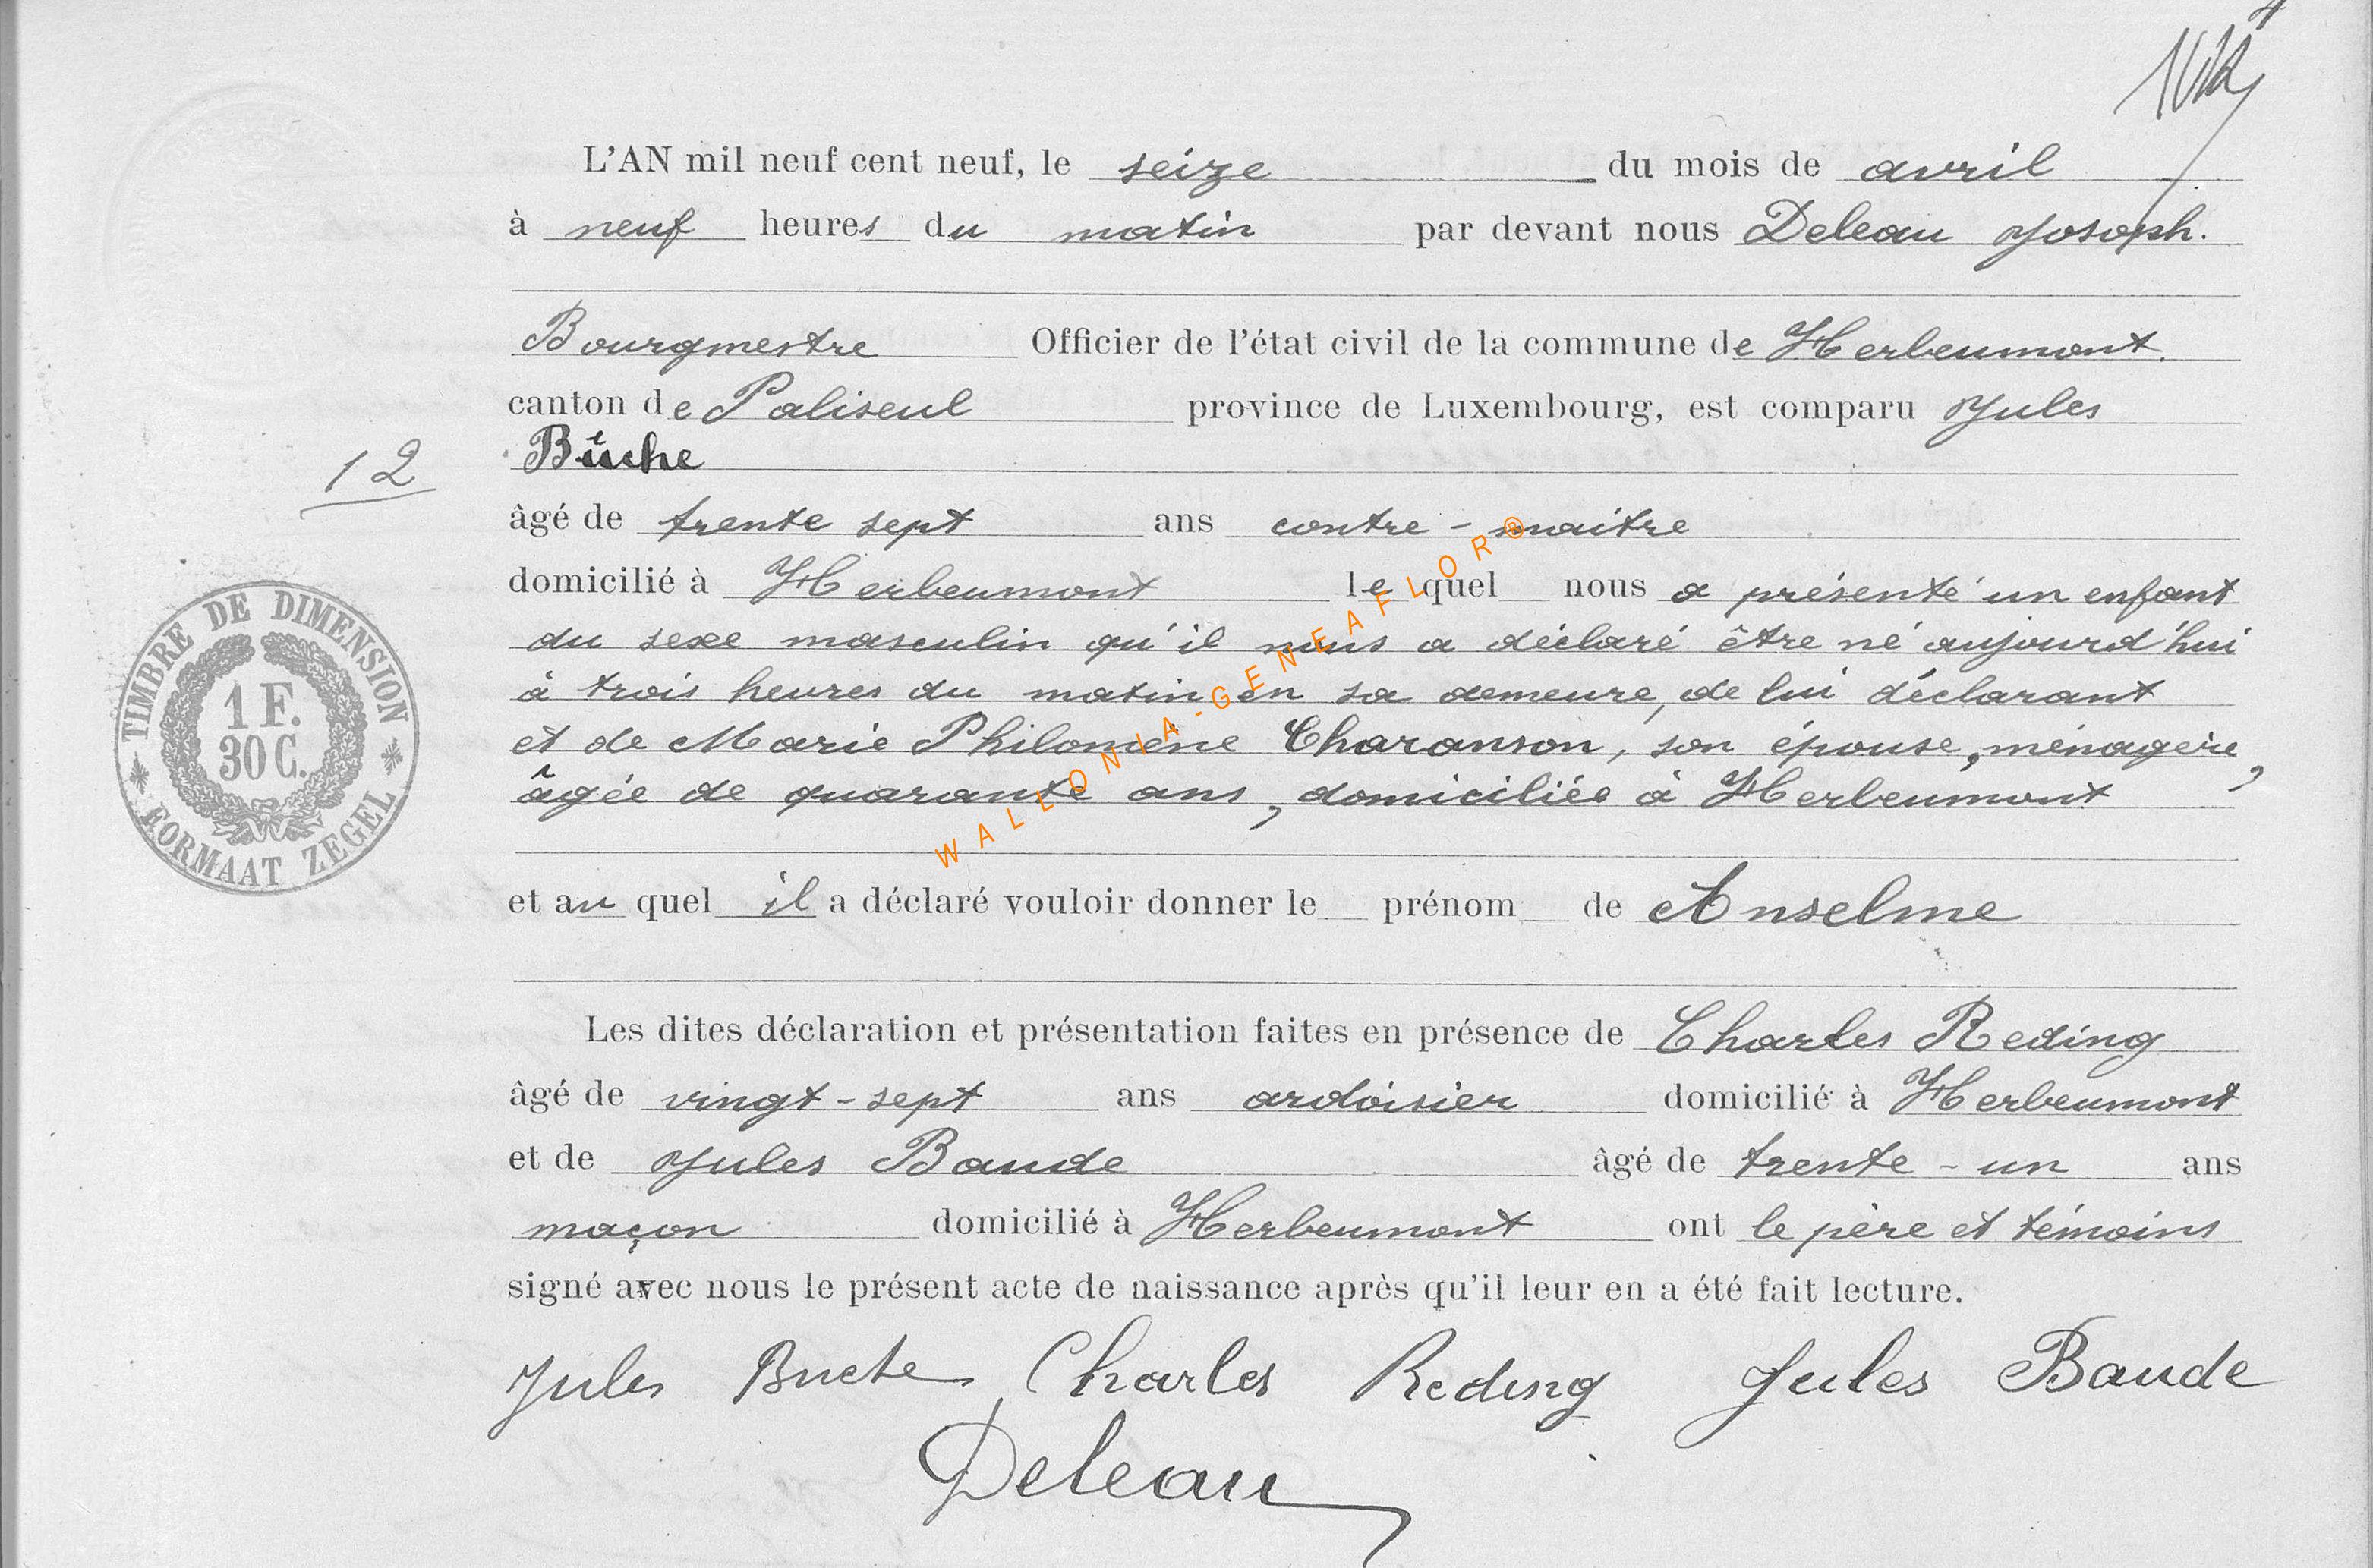 L'AN mil neuf cent neuf, le seize du mois de avril
à neuf heures du matin par devant nous Deleau Josoph.
Bourgmestre Officier de l'état civil de la commune de Herbeumont.
canton de Paliseul province de Luxembourg, est comparu Jules
12
Bûche
âgé de trente sept ans contre-maitre
domicilié à Herbeumont lequel nous a présenté un enfant
du sexe masculin qu'il nous a déclaré être né aujourd'hui
à trois heures du matin en sa demeure, de lui déclarant
et de Marie Philomène Charanson, son épouse, ménagère,
âgée de quarante ans, domiciliée à Herbeumont
et au quel il a déclaré vouloir donner le prénom de Anselme
Les dites déclaration et présentation faites en présence de Charles Reding
âgé de vingt-sept ans ardoisier domicilié à Herbeumont
et de Jules Baude âgé de trente-un ans
maçon domicilié à Herbeumont ont le père et témoins
signé avec nous le présent acte de naissance après qu'il leur en a été fait lecture.
Jules Buche Charles Reding Jules Baude
Deleau
TIMBRE DE DIMENSION
1 F.
30 C.
FORMAAT ZEGEL
WALLONIA-GENEAFLOR®